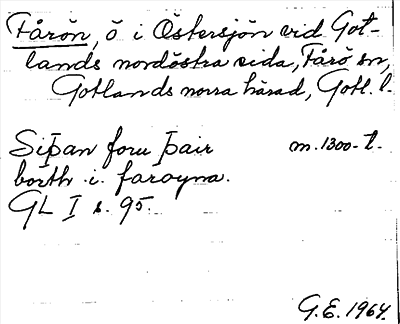 Fårön, ö i Östersjön vid Got-
lands nordöstra sida, Fårö sn,
Gotlands norra härad, Gotl. l.
Siþan foru þair m. 1300-t.
borth .i. faroyna.
GL I s. 95.
G.E. 1964.